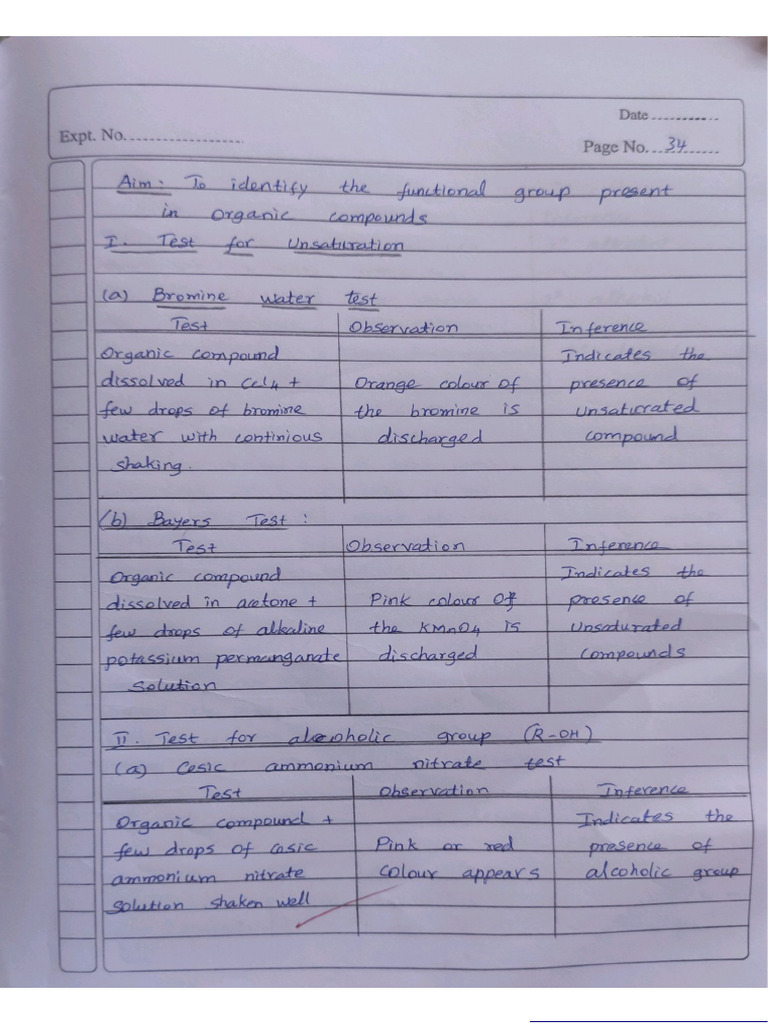 Date
Expt. No.
Page No. 34
Aim: To identify the functional group present
in organic compounds
I. Test for Unsaturation
(a) Bromine water test
Test Observation Inference
Organic compound Indicates the
dissolved in CCl4 + Orange colour of presence of
few drops of bromine the bromine is unsaturated
water with continious discharged compound
shaking.
(b) Bayers Test :
Test Observation Inference
Organic compound Indicates the
dissolved in acetone + Pink colour of presence of
few drops of alkaline the KMnO4 is unsaturated
potassium permanganate discharged compounds
solution
II. Test for alcoholic group (R-OH)
(a) Cesic ammonium nitrate test
Test Observation Inference
Organic compound + Indicates the
few drops of casic Pink or red presence of
ammonium nitrate colour appears alcoholic group
solution shaken well